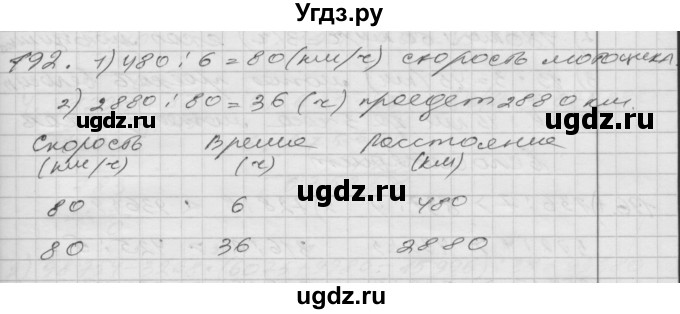 Угдз.ру
192. 1) 480 : 6 = 80 (км/ч) скорость мотоцикл.
2) 2880 : 80 = 36 (ч) проедет 2880 км.
Скорость Время Расстояние
(км/ч) (ч) (км)
ugdz.ru ugdz.ru
80 · 6 480
ugdz.ru
80 · 36 2880
ugdz.ru ugdz.ru
ugdz.ru